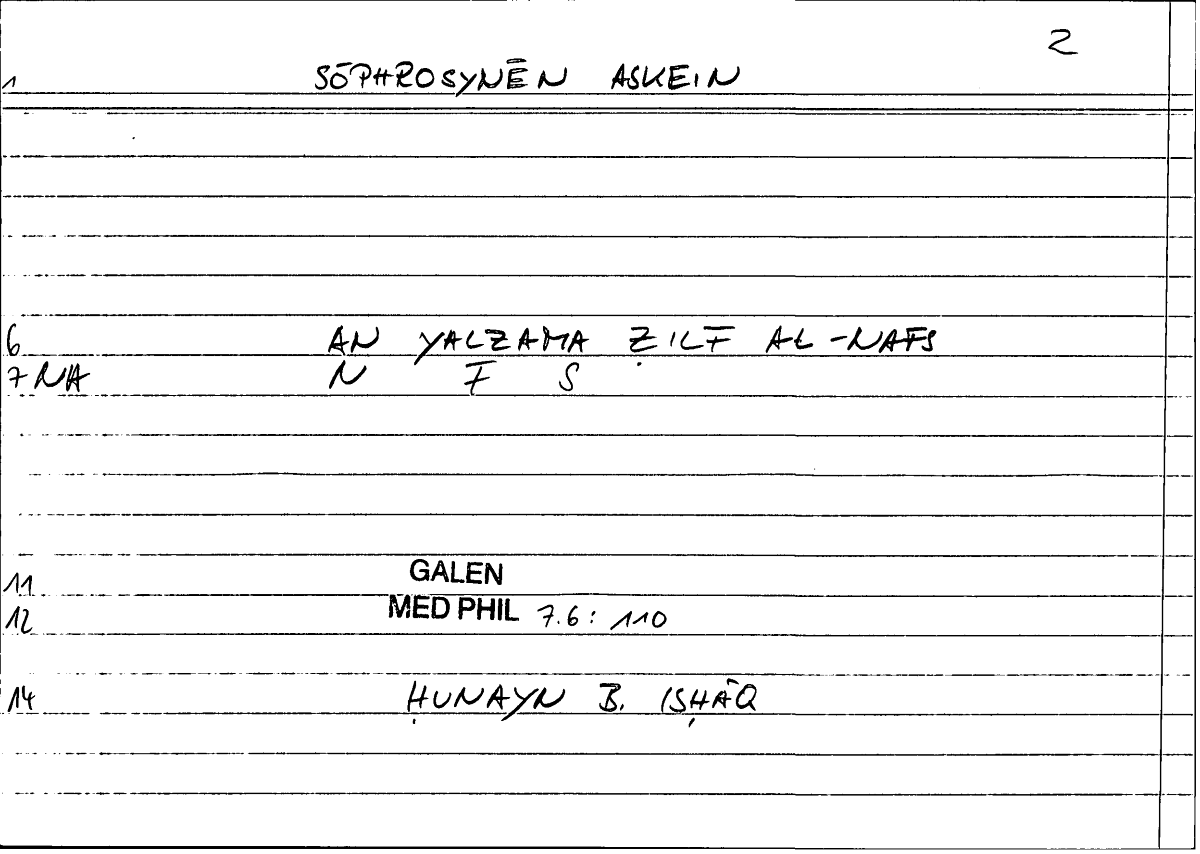 2
1 SŌPHROSYNĒN ASKEIN
6 AN YALZAMA ẒILF AL-NAFS
7 NA N F S
11 GALEN
12 MED PHIL 7.6: 110
14 ḤUNAYN B. ISḤĀQ